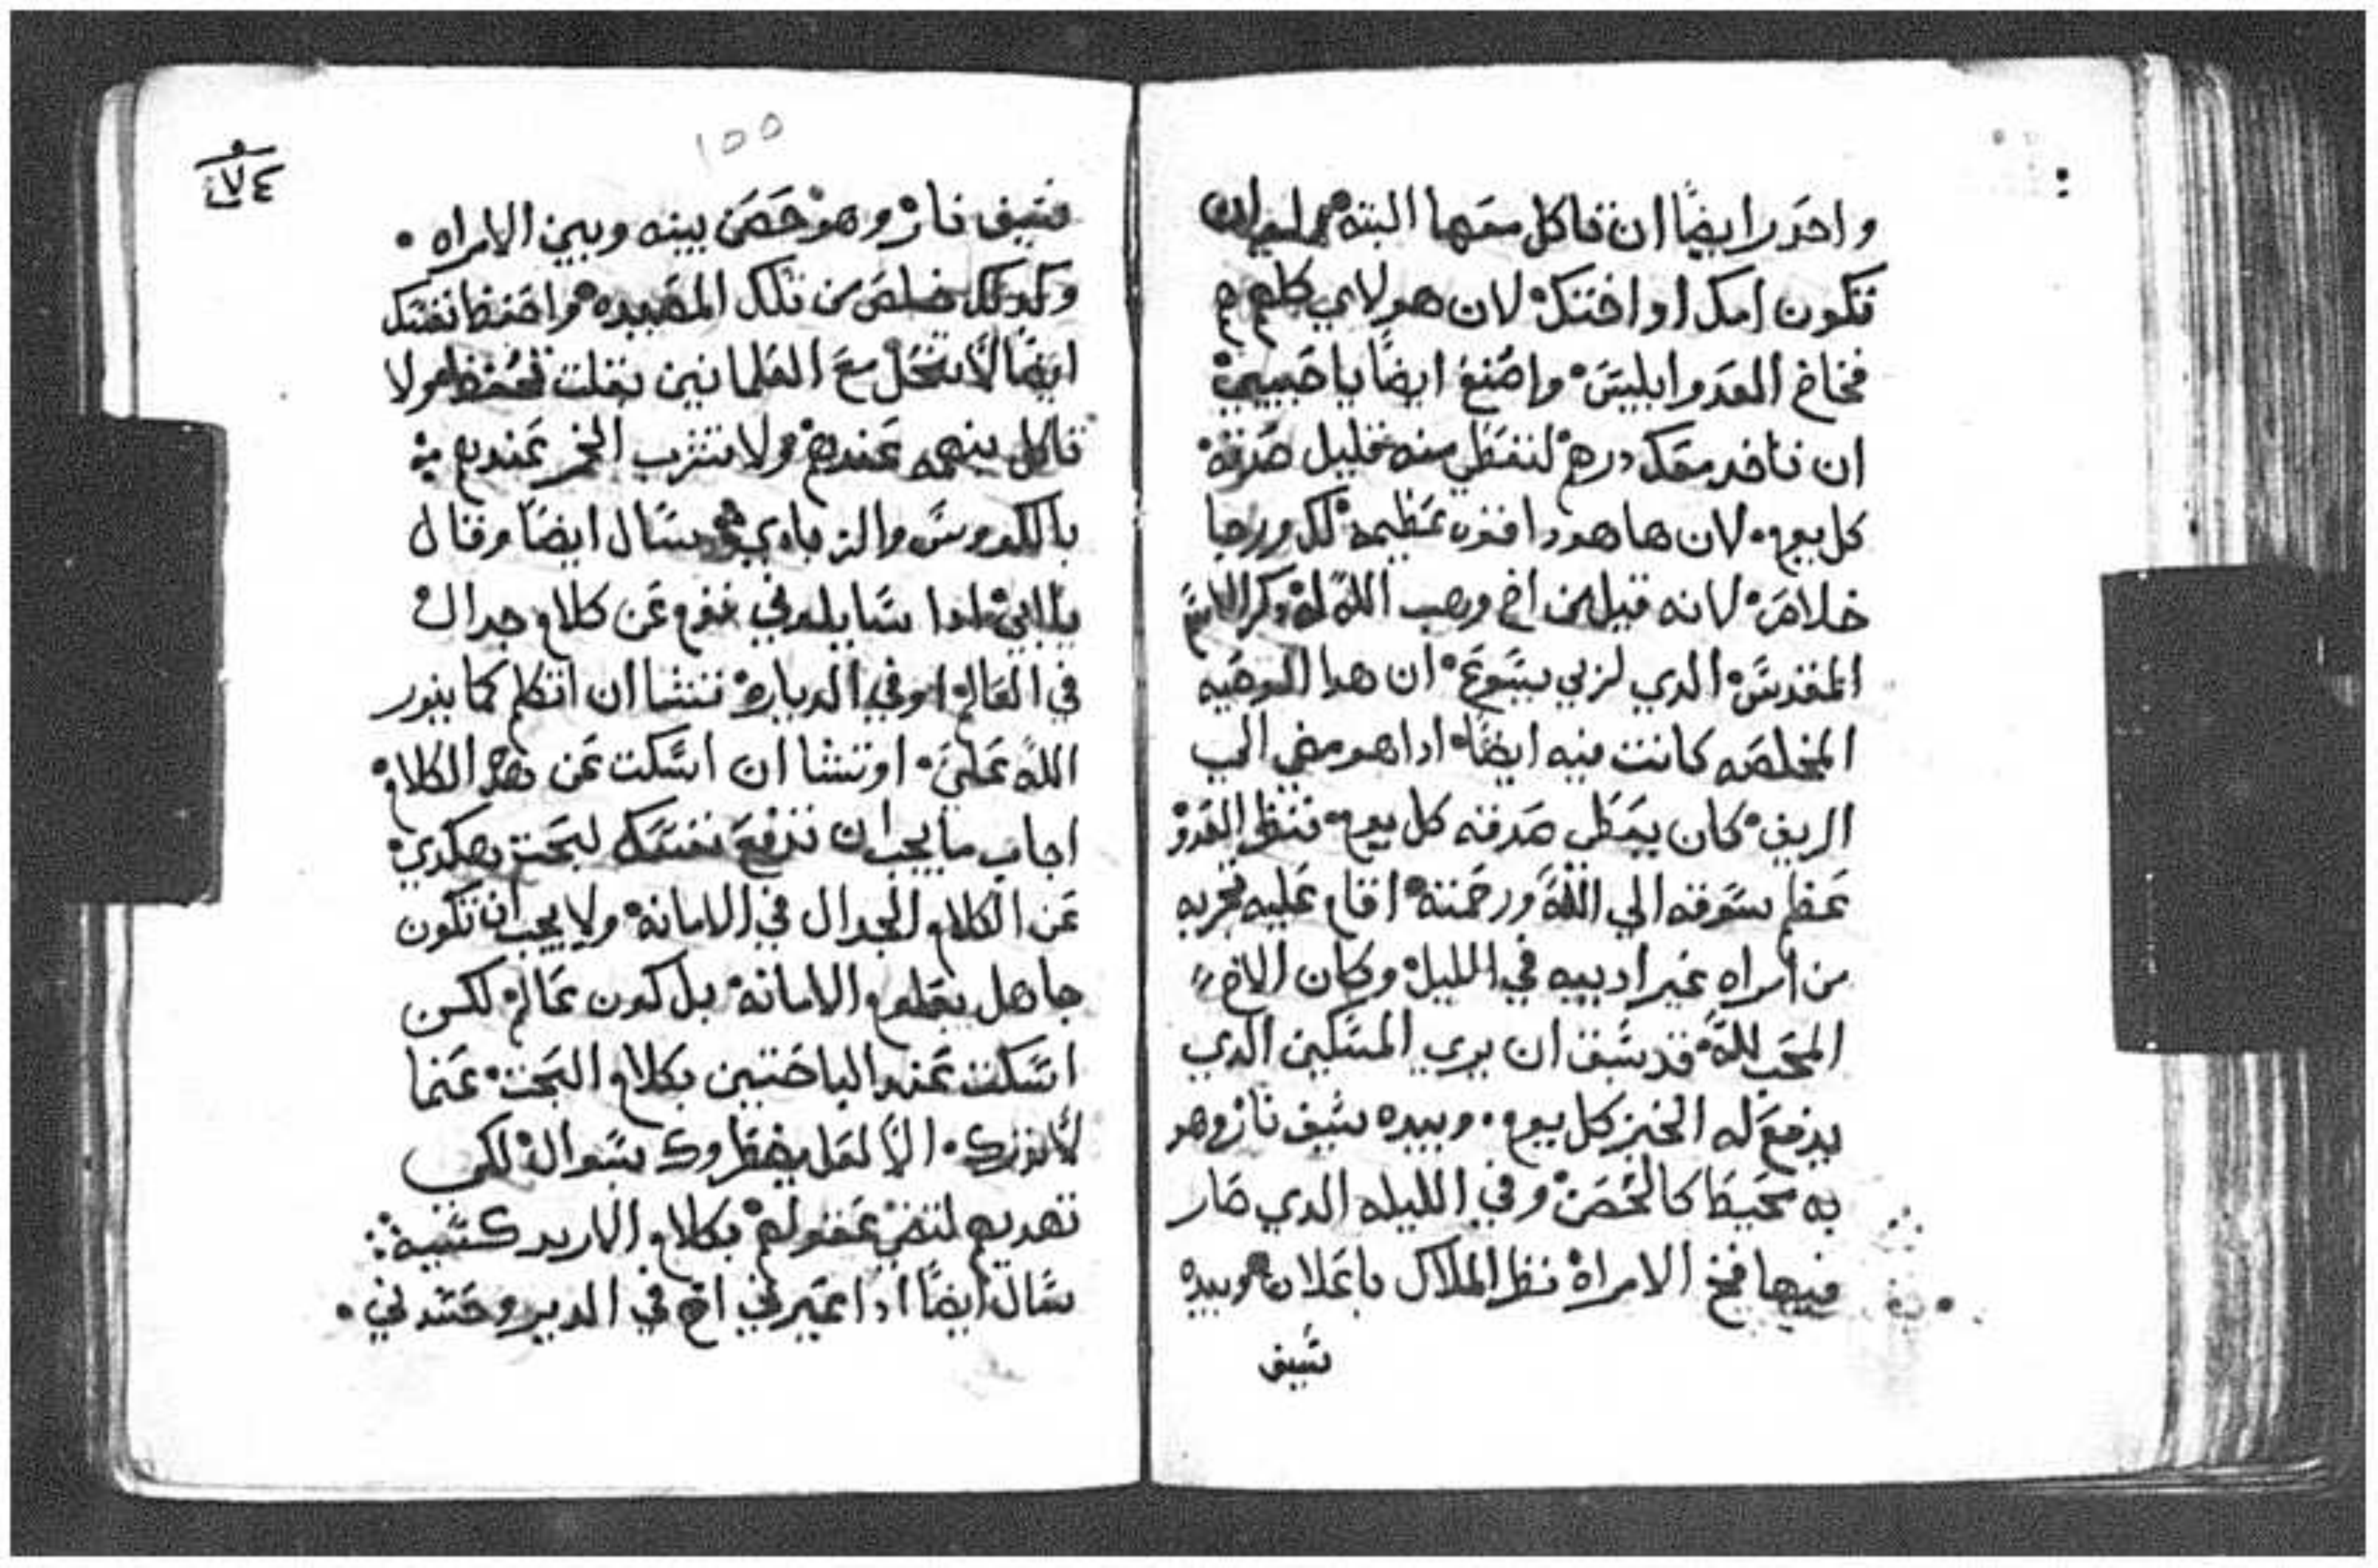 واحدر ايضًا ان تاكل معها البته ولو ان
تكون امك او اختك لان هولاي كلهم هم
فخاخ العدو ابليس واصنع ايضًا يا حبيبي
ان تاخد معك درهم لتعطي منه قليل صدقه
كل يوم لان ها هودا قوه عظيمه لك ورجا
خلاص لانه قيل عن اخ وهب الله له ذكر الاسم
المقدس الدي لربي يسوع ان هدا الموهبه
المخلصه كانت فيه ايضًا ادا هو مضي الي
الريف كان يعطي صدقه كل يوم فنظر العدو
عظم شوقه الي الله ورحمته اقام عليه تجربه
من امراه غير اديبه في الليل وكان الاخ
المحب لله قد سبق ان يري المسكين الدي
يدفع له الخبز كل يوم وبيده سيف نار وهو
به محيط كالحصن وفي الليله الدي صار
فيها فخ الامراة نظر الملاك باعلان وبيده
سيف
١٧٤
١٥٥
سيف نار وهو حصن بينه وبين الامراه
وكدلك خلص من تلك المصيده واحفظ نفسك
ايضًا لا تنحل مع العلمانيين بقلت تحفظ ولا
تاكل بنهمه عندهم ولا تشرب الخمر عندهم
بالكووس والزبادي سال ايضًا وقال
يا ابي ادا سايلوني قوم عن كلام جدال
في العالم او في الديارة تشا ان اتكلم كما ينور
الله علي اوتشا ان اسكت عن هدا الكلام
اجاب ما يجب ان تدفع نفسك لبحت هكدي
عن الكلام الجدال في الامانة ولا يجب ان تكون
جاهل بعلوم الامانة بل كون عالم لكن
اسكت عند الباحتين بكلام البحت عنما
لا تدرك الا لعل يضطروك بسوال لكي
تهديهم لتضي عقولهم بكلام الاريد كسيه
سال ايضًا ادا عيرني اخ في الدير وحسدني